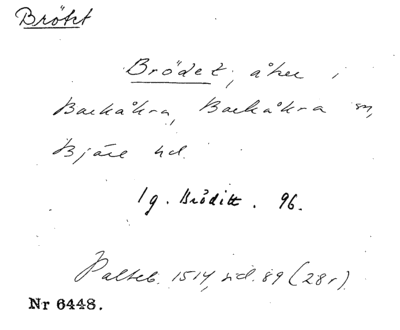 Brötet
Brödet, åker i
Backåkra, Backåkra sn,
Bjäre hd.
1 g. Bröditt. 96.
Palteb. 1514, sid. 89 (28r).
Nr 6448.